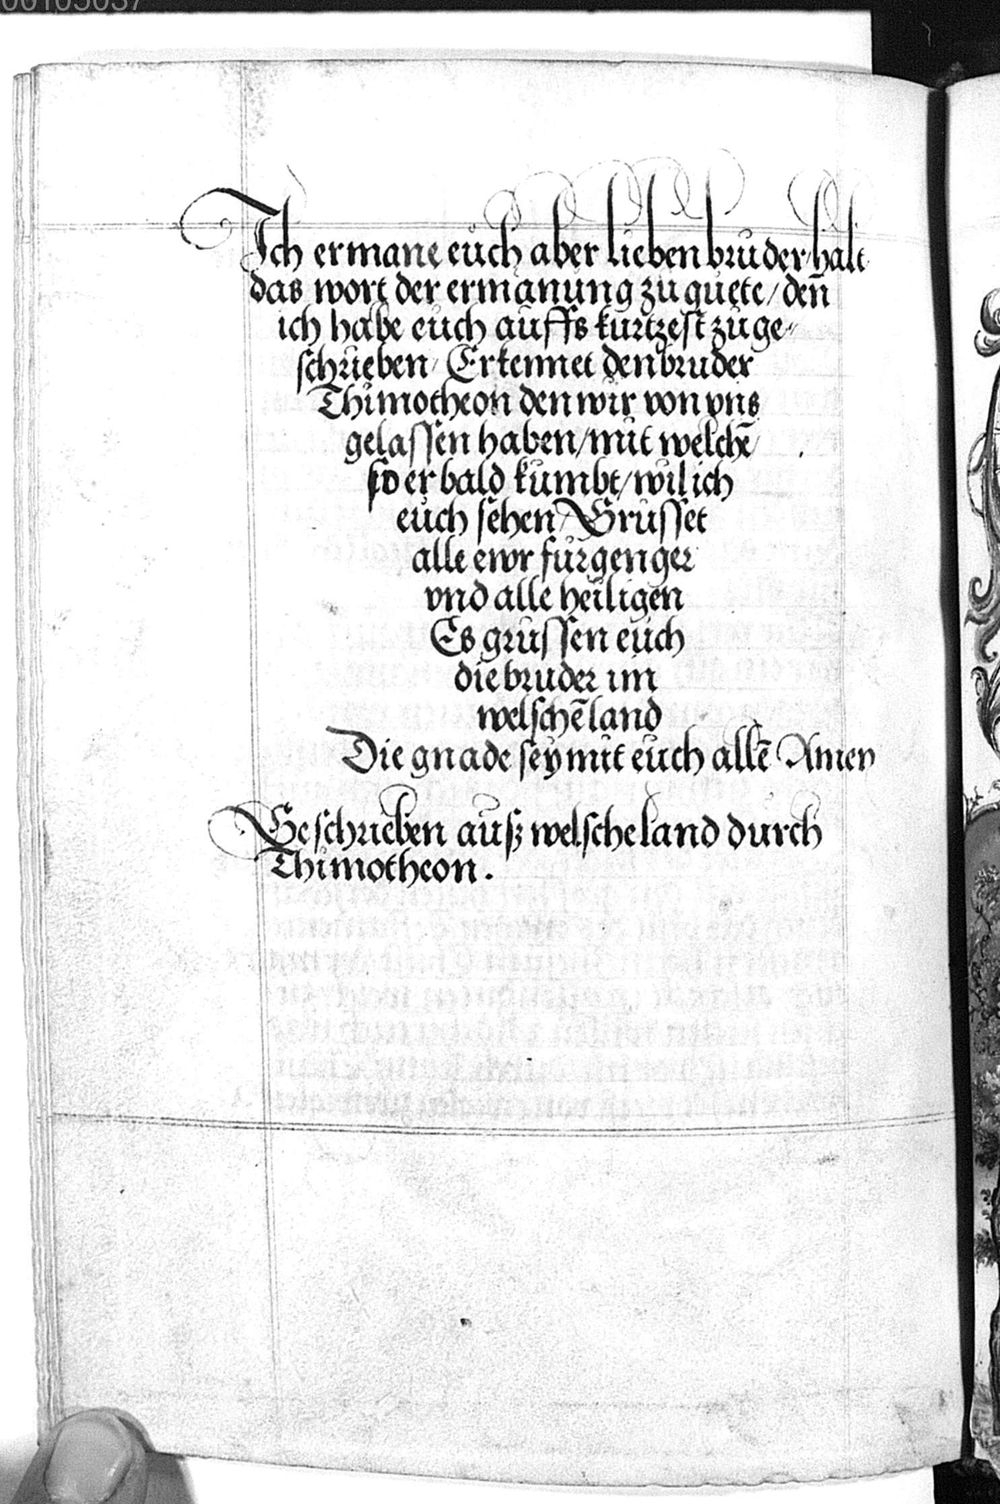 00105037
Ich ermane euch aber lieben bruder/halt
das wort der ermanung zu guete/ deñ
ich habe euch auffs kurtzest zuge-
schrieben/ Erkennet den bruder
Thimotheon den wir von vns
gelassen haben/mit welchē/
so er bald kumbt/wil ich
euch sehen/ Grusset
alle ewr furgenger
vnd alle heiligen
Es grussen euch
die bruder im
welschē land
Die gnade sey mit euch allē Amen
Geschrieben auß welscheland durch
Thimotheon.